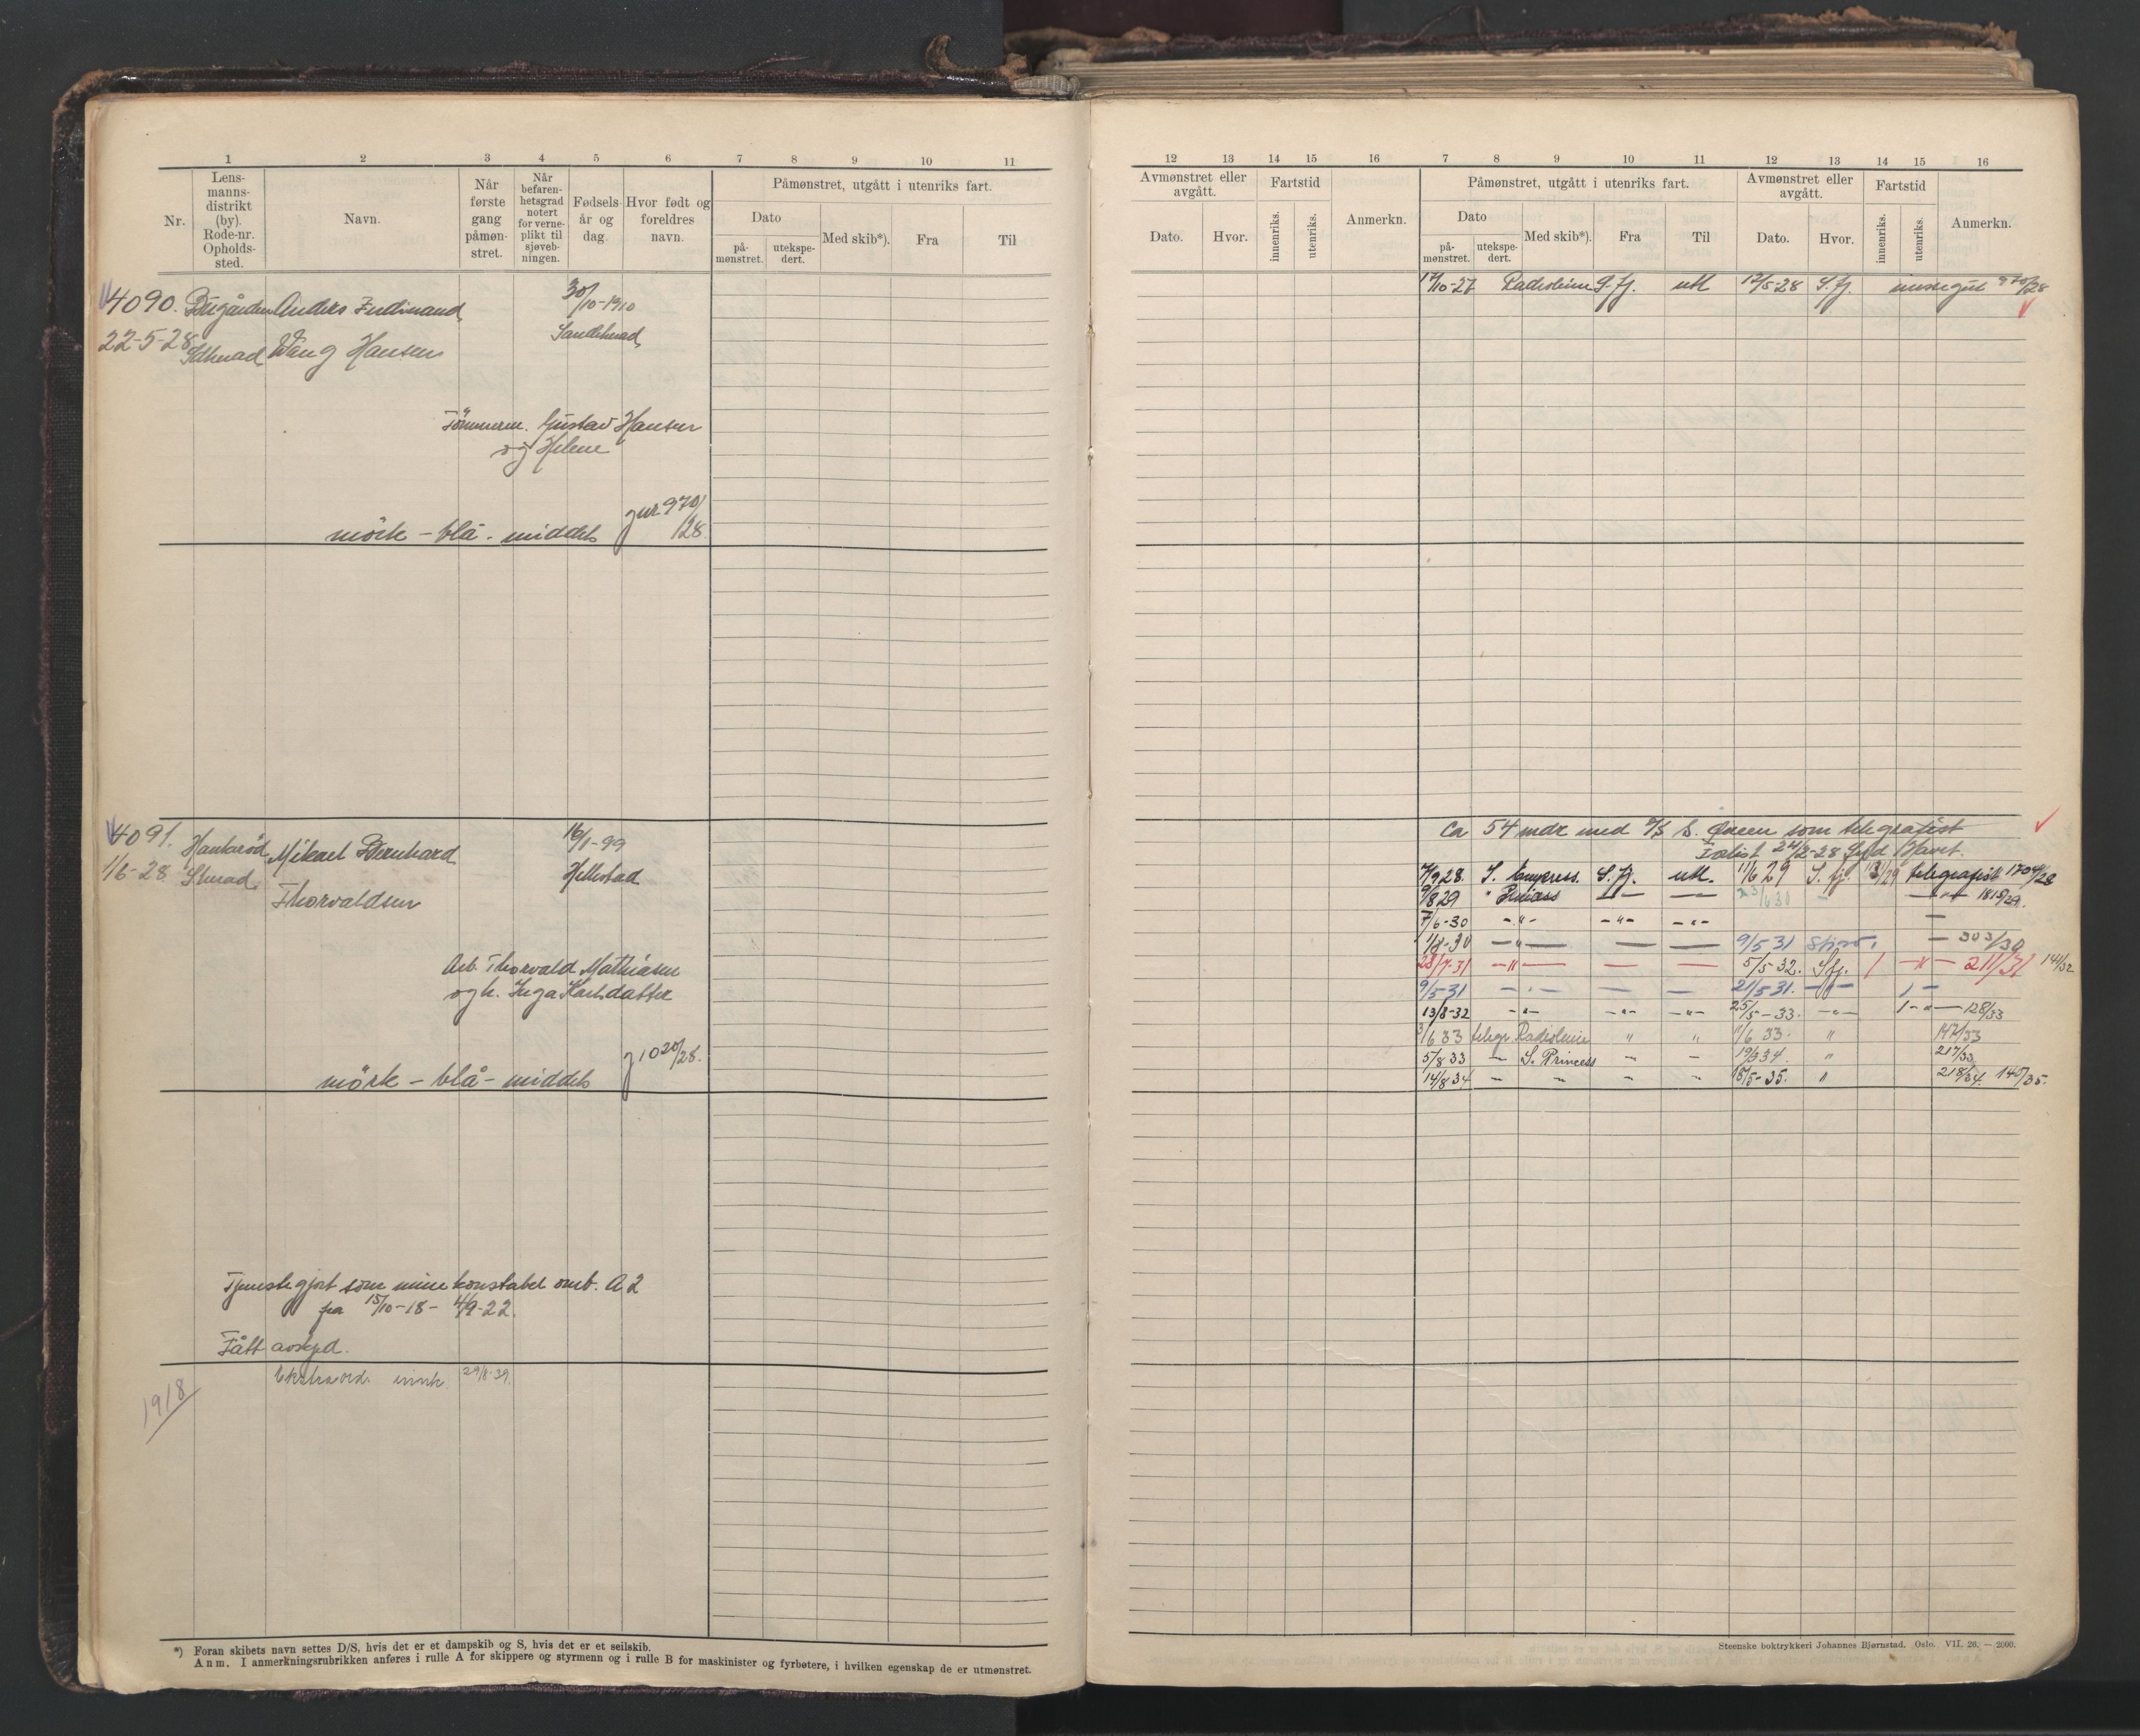 1 2 3 4 5 6 7 8 9 10 11
Nr.
Lens-
manns-
distrikt
(by).
Rode-nr.
Opholds-
sted.
Navn.
Når
første
gang
påmøn-
stret.
Når
befaren-
hetsgrad
notert
for verne-
plikt til
sjøveb-
ningen.
Fødsels-
år og
dag.
Hvor født og
foreldres
navn.
Påmønstret, utgått i utenriks fart.
Dato
på-
mønstret.
utekspe-
dert.
Med skib*).
Fra
Til
4090. Bugården Anders Ferdinand 30/10-1910
22-5-28 Wang Hansen
Tømmerm. Gustav Hansen
og Helene
970/28
mörk - blå - middels
4091. Mikael Bernhard 16/1-99
1/6-28 Thorvaldsen
Arb. Thorvald Mathiasen
og h. Inga
1020/28.
mörk - blå - middels
Tjenestegjort som minekonstabel omb. A2
fra 15/10-18 -
Fått avskjed.
Ekstraord. 29/8-39.
1918
*) Foran skibets navn settes D/S, hvis det er et dampskib og S, hvis det er et seilskib.
Anm. I anmerkningsrubrikken anføres i rulle A for skippere og styrmenn og i rulle B for maskinister og fyrbøtere, i hvilken egenskap de er utmønstret.
12 13 14 15 16 7 8 9 10 11 12 13 14 15 16
Avmønstret eller
avgått.
Dato.
Hvor.
Fartstid
innenriks.
utenriks.
Anmerkn.
Påmønstret, utgått i utenriks fart.
Dato
på-
mønstret.
utekspe-
dert.
Med skib*).
Fra
Til
Avmønstret eller
avgått.
Dato.
Hvor.
Fartstid
innenriks.
utenriks.
Anmerkn.
17/10-27 S.fj. utl 12/5-28 S.fj. 970/28
Ca 54 mdr med S. Queen som telegrafist
24/2-28 Syd Havet.
7/9 28. S. Empress. S.fj. utl. 11/6 29 S.fj. telegrafist 1704/28
9/8 29 " Prinsess — — — 1815/29.
7/6-30 -"- -"- -"- —
1/8-30 -"- — — 9/5 31 — 303/30
28/7-31 -"- — — 5/5-32. S.fj. 1 -"- 211/31 141/32
9/5-31 - " - — — 21/5-31. — 1 -
13/8-32 -"- -"- -"- 25/5-33. -"- 1 -"- 128/33
3/6 33 telegr. " " 11/6 33. " 147/33
5/8 33 — S. Princess — — 19/3 34. " 217/33
14/8 34 — — — — 18/5-35. " 218/34. 140/35.
Steenske boktrykkeri Johannes Bjørnstad. Oslo. VII. 26. — 2000.